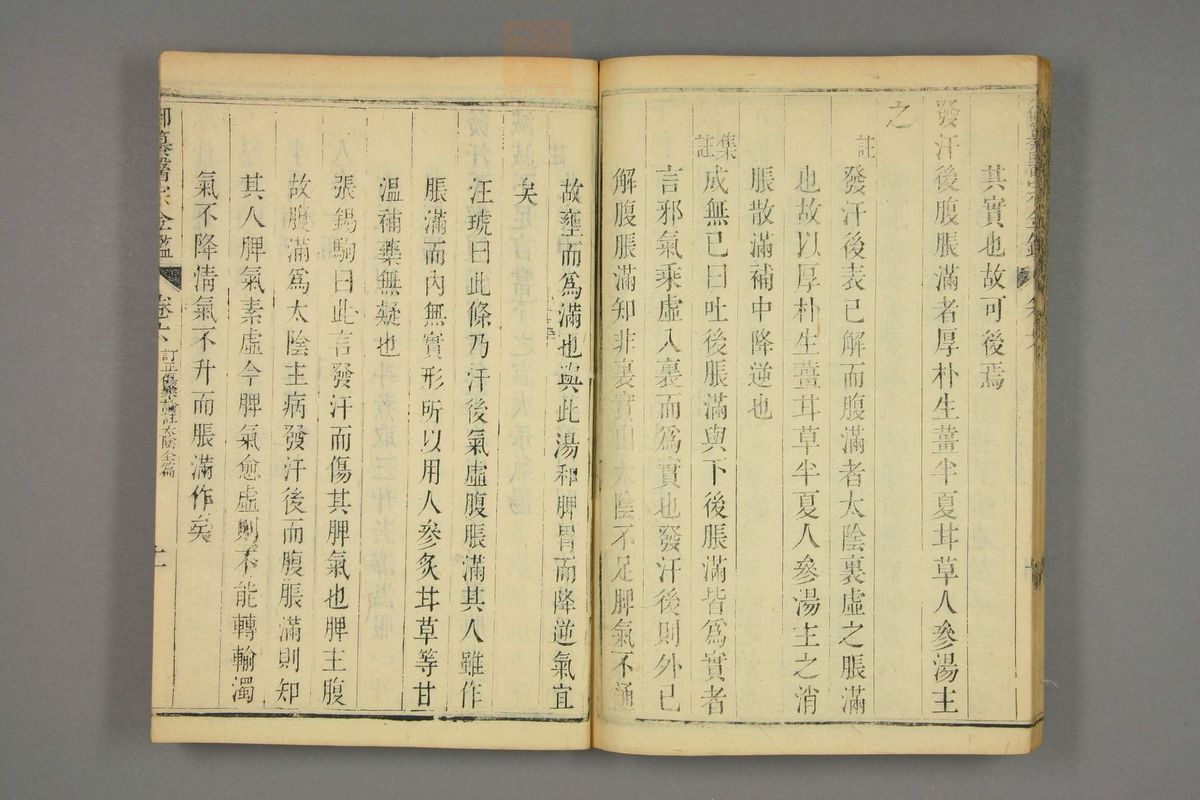 其實也故可後焉
發汗後腹脹滿者厚朴生薑半夏甘草人參湯主
之
註
發汗後表已解而腹滿者太陰裏虛之脹滿
也故以厚朴生薑甘草半夏人參湯主之消
脹散滿補中降逆也
集註
成無已曰吐後脹滿與下後脹滿皆為實者
言邪氣乘虛入裏而為實也發汗後則外已
解腹脹滿知非裏實由太陰不足脾氣不通
故壅而為滿也與此湯和脾胃而降逆氣宜
矣
汪琥曰此條乃汗後氣虛腹脹滿其人雖作
脹滿而內無實形所以用人參炙甘草等甘
溫補藥無疑也
張錫駒曰此言發汗而傷其脾氣也脾主腹
故腹滿為太陰主病發汗後而腹脹滿則知
其人脾氣素虛今脾氣愈虛則不能轉輸濁
氣不降清氣不升而脹滿作矣
御纂醫宗金鑑
卷六
訂正傷寒論註太陰全篇
十一